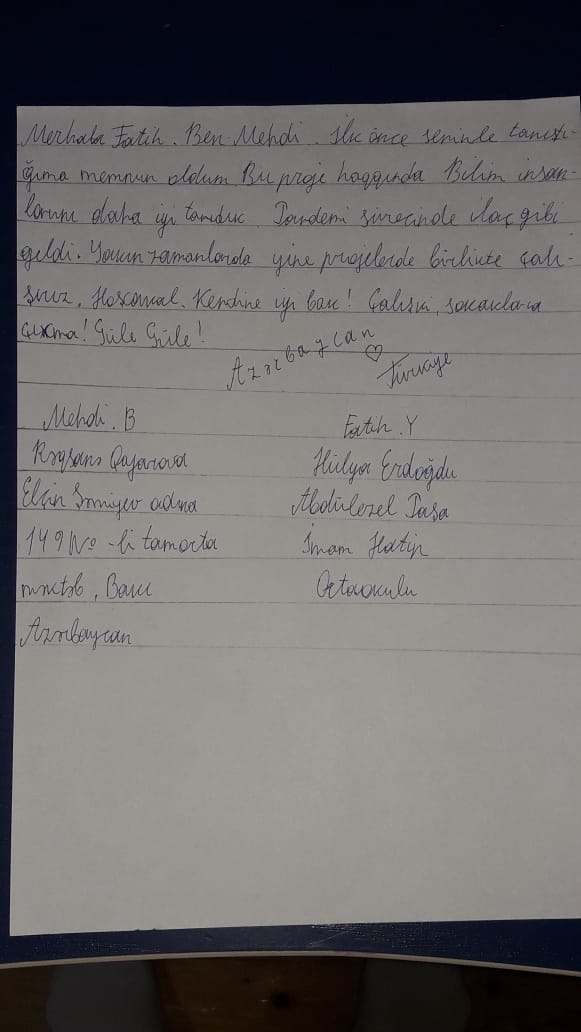 Merhaba Fatih. Ben Mehdi. İlk önce seninle tanıştı-
ğıma memnun oldum. Bu proje haqqında Bilim insan-
larını daha iyi tanıduk. Pandemi sürecinde ilaç gibi
geldi. Yakın zamanlarda yine projelerde birlikte çalı-
şırız. Hoşcakal. Kendine iyi bak! Çalışki, sokaklara
çıkma! Güle Güle!
Azərbaycan ♡ Türkiye
Mehdi. B Fatih. Y
Qajarova Hülya Erdoğdu
Elçin adına Abdülezel Paşa
149 №-li tamorta İmam Hatip
məktəb, Bakı Ortaokulu
Azərbaycan